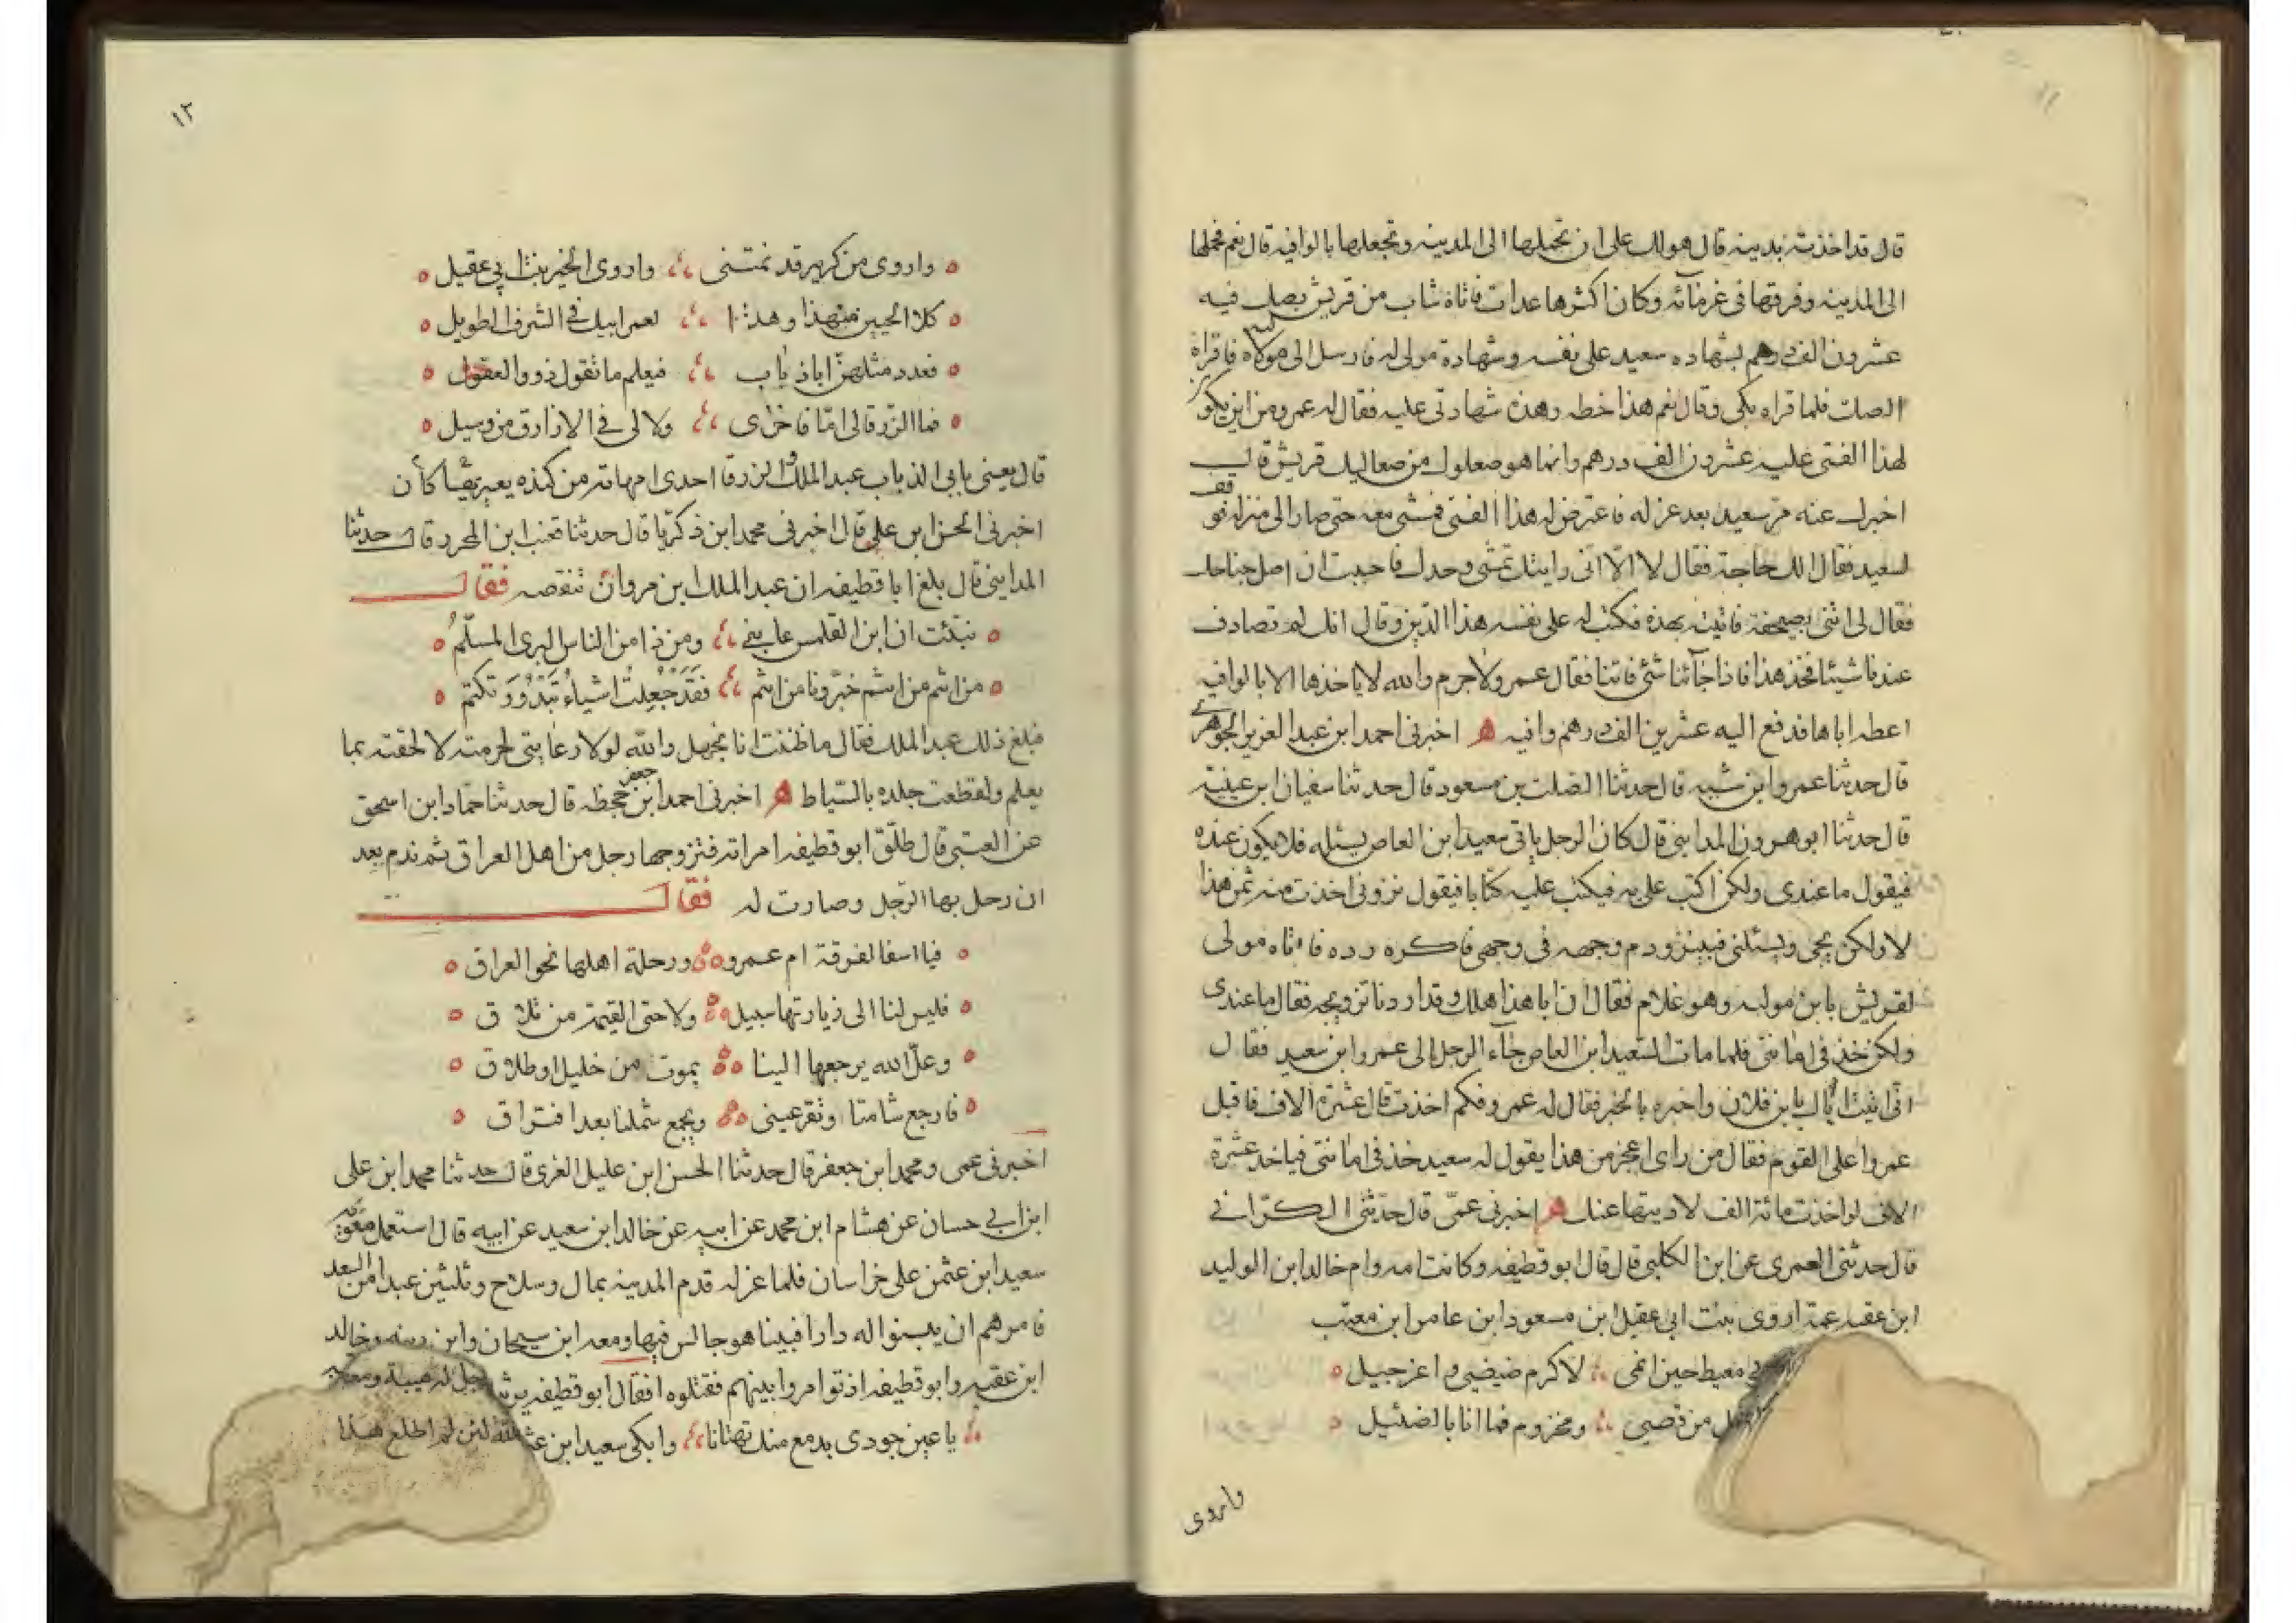 قال قد اخذته بدينه قال هو لك على ان تحملها الى المدينه وتجعلها بالوافيه قال نعم فحملها
الى المدينه وفرقها فى غرمائه وكان اكثرها عدات فاتاه شاب من قريش بصك فيه
عشرون الف درهم بشهاده سعيد على نفسه وشهادة مولى له فارسل الى مولاه فاقراه
الصك فلما قراه بكى وقال نعم هذا خطه وهذه شهادتى عليه فقال له عمرو من اين يكون
لهذا الفتى عليه عشرون الف درهم وانما هو صعلوك من صعاليك قريش قال
اخبرك عنه مر سعيد بعد عزله فاعترض له هذا الفتى فمشى معه حتى صار الى منزله فوقف
سعيد فقال الك حاجة فقال لا الا انى رايتك تمشى وحدك فاحببت ان اصل جناحك
فقال لى ائتنى بصحيفة فاتيته بهذه فكتب له على نفسه هذا الدين وقال انك لم تصادف
عندنا شيئا فخذ هذا فاذا جآئنا شئ فاتنا فقال عمرو لا جرم والله لا ياخذها الا بالوافيه
اعطه اياها فدفع اليه عشرين الف درهم وافيه ه اخبرنى احمد ابن عبد العزيز الجوهرى
قال حدثنا عمرو ابن شبيه قال حدثنا الصلت بن مسعود قال حدثنا سفيان ابن عيينة
قال حدثنا ابو هرون المداينى قال كان الرجل ياتى سعيد ابن العاص يسئله فلا يكون عنده
فيقول ما عندى ولكن اكتب على به فيكتب عليه كتابا فيقول تزونى اخذت منه ثمن هذا
لا ولكن يجى ويسئلنى فينزو دم وجهه فى وجهى فاكره رده فاتاه مولى
لقريش بابن موليه وهو غلام فقال ان ابا هذا هلك وقد اردنا تزويجه فقال ما عندى
ولكن خذ فى امانتى فلما مات سعيد ابن العاص جآء الرجل الى عمرو ابن سعيد فقال
انى اتيت اباك بابن فلان واخبره بالخبر فقال له عمرو فكم اخذت قال عشرة الاف فاقبل
عمروا على القوم فقال من راى اعجز من هذا يقول له سعيد خذ فى امانتى فياخذ عشرة
الاف لو اخذت مائة الف لاديتها عنك ه اخبرنى عمى قال حدثنى الكرانى
قال حدثنى العمرى عن ابن الكلبى قال قال ابو قطيفه وكانت امه وام خالد ابن الوليد
ابن عقبه عمة اروى بنت ابى عقيل ابن مسعود ابن عامر ابن معتب
ابى معيط حين انمى لاكرم ضيضئ واعز جيل
من قصى ومخزوم فما انا بالضئيل
واروى
١٢
واروى من كريز قد نمتنى واروى الخير بنت ابى عقيل
كلا الحيين من هذا وهذا لعمر ابيك فى الشرف الطويل
فعدد مثلهن اباذباب فيعلم ما تقول ذووالعقول
فما الزرقا لى اما فاخزى ولا لى فى الازارق من وسيل
قال يعنى بابى الذباب عبد الملك والزرقا احدى امهاته من كنده يعير بها كان
اخبرنى الحسن ابن على قال اخبرنى محمد ابن زكريا قال حدثنا قعنب ابن المحرر قال حدثنا
المداينى قال بلغ ابا قطيفه ان عبد الملك ابن مروان تنقصه فقال
نبئت ان ابن القلمس عابنى ومن ذا من الناس البرى المسلم
من انتم من انتم خبرونا من انتم فقد جعلت اشياء تبدو وتكتم
فبلغ ذلك عبد الملك فقال ما ظننت انا نجهل والله لولا رعايتى لحرمته لالحقته بما
يعلم ولقطعت جلده بالسياط ه اخبرنى احمد ابن جعفر جحظه قال حدثنا حماد ابن اسحق
عن العتبى قال طلق ابو قطيفه امراته فتزوجها رجل من اهل العراق ثم ندم بعد
ان رحل بها الرجل وصارت له فقال
فيا اسفا لفرقة ام عمرو ورحلة اهلها نحو العراق
فليس لنا الى زيارتها سبيل ولا حتى القيمة من تلاق
وعل الله يرجعها الينا بموت من خليل او طلاق
فارجع شامتا وتقر عينى ويجمع شملنا بعد افتراق
اخبرنى عمى ومحمد ابن جعفر قال حدثنا الحسن ابن عليل الغزى قال حدثنا محمد ابن على
ابن ابى حسان عن هشام ابن محمد عن ابيه عن خالد ابن سعيد عن ابيه قال استعمل معويه
سعيد ابن عثمن على خراسان فلما عزله قدم المدينه بمال وسلاح وثلثين عبدا من السغد
فامرهم ان يبنوا له دارا فبينا هو جالس فيها ومعه ابن سيحان وابن زينه وخالد
ابن عقبه وابو قطيفه اذ توامروا بينهم فقتلوه افقال ابو قطيفه يرثيه
يا عين جودى بدمع منك تهتانا وابكى سعيد ابن